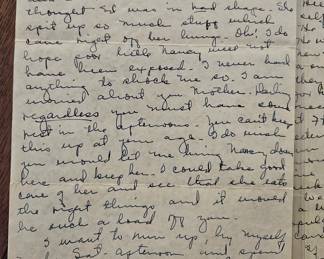 thought Ed was in bad shape. She
spit up so much stuff which
came right off her lungs. Oh! I do
hope poor little Nancy will not
have been exposed. I never had
anything to shock me so. I am
worried about you Mother. Darling
regardless you must have some
rest in the afternoons. You can't keep
this up at your age. I do wish
you would let me bring Nancy down
here and keep her. I could take good
care of her and see that she eats
the right things and it would
be such a load off you.
I want to run up, by myself
Sat. afternoon and spend